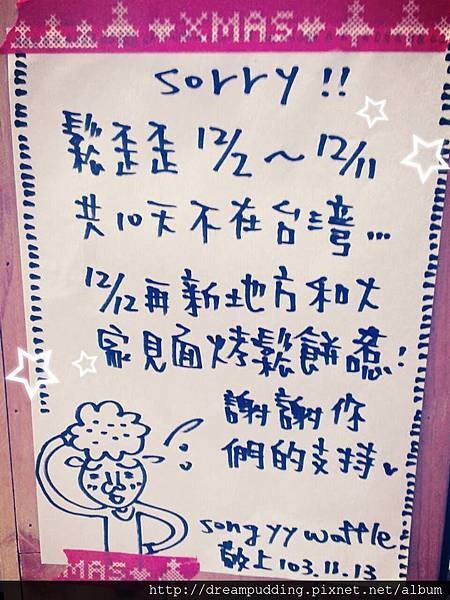 XMAS
sorry!!
鬆歪歪 12/2～12/11
共10天不在台灣...
12/12再新地方和大
家見面烤鬆餅惹!
謝謝你
們的支持
songyy waffle
敬上 103.11.13
MAS
http://dreampudding.pixnet.net/album